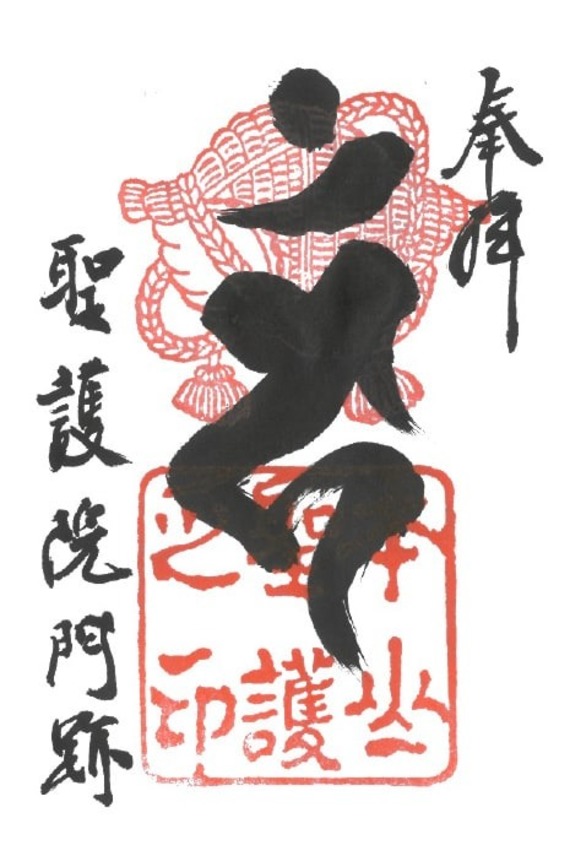 奉拝
本山
聖護
之印
聖護院門跡